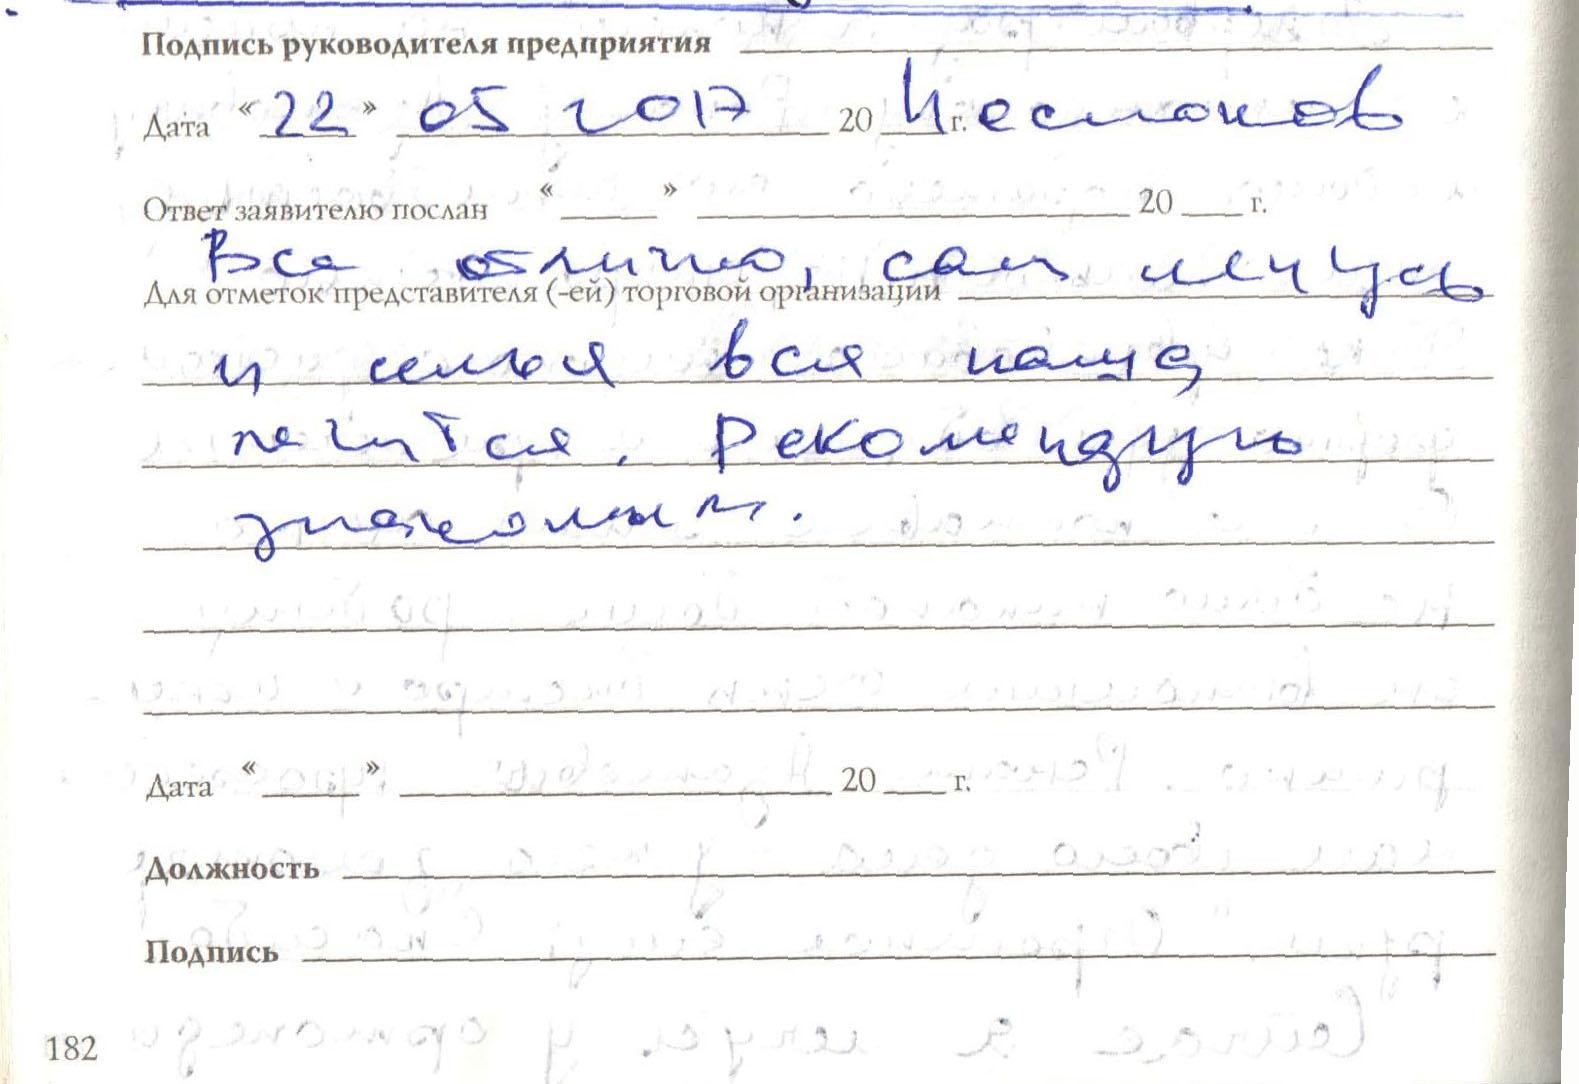 Подпись руководителя предприятия
Дата “22” 05 2017 20 г.
Ответ заявителю послан “ ” 20 г.
Все отлично, сам лечусь
Для отметок представителя (-ей) торговой организации
и семья вся наша
лечится. Рекомендую
знакомым.
Дата “ ” 20 г.
Должность
Подпись
182